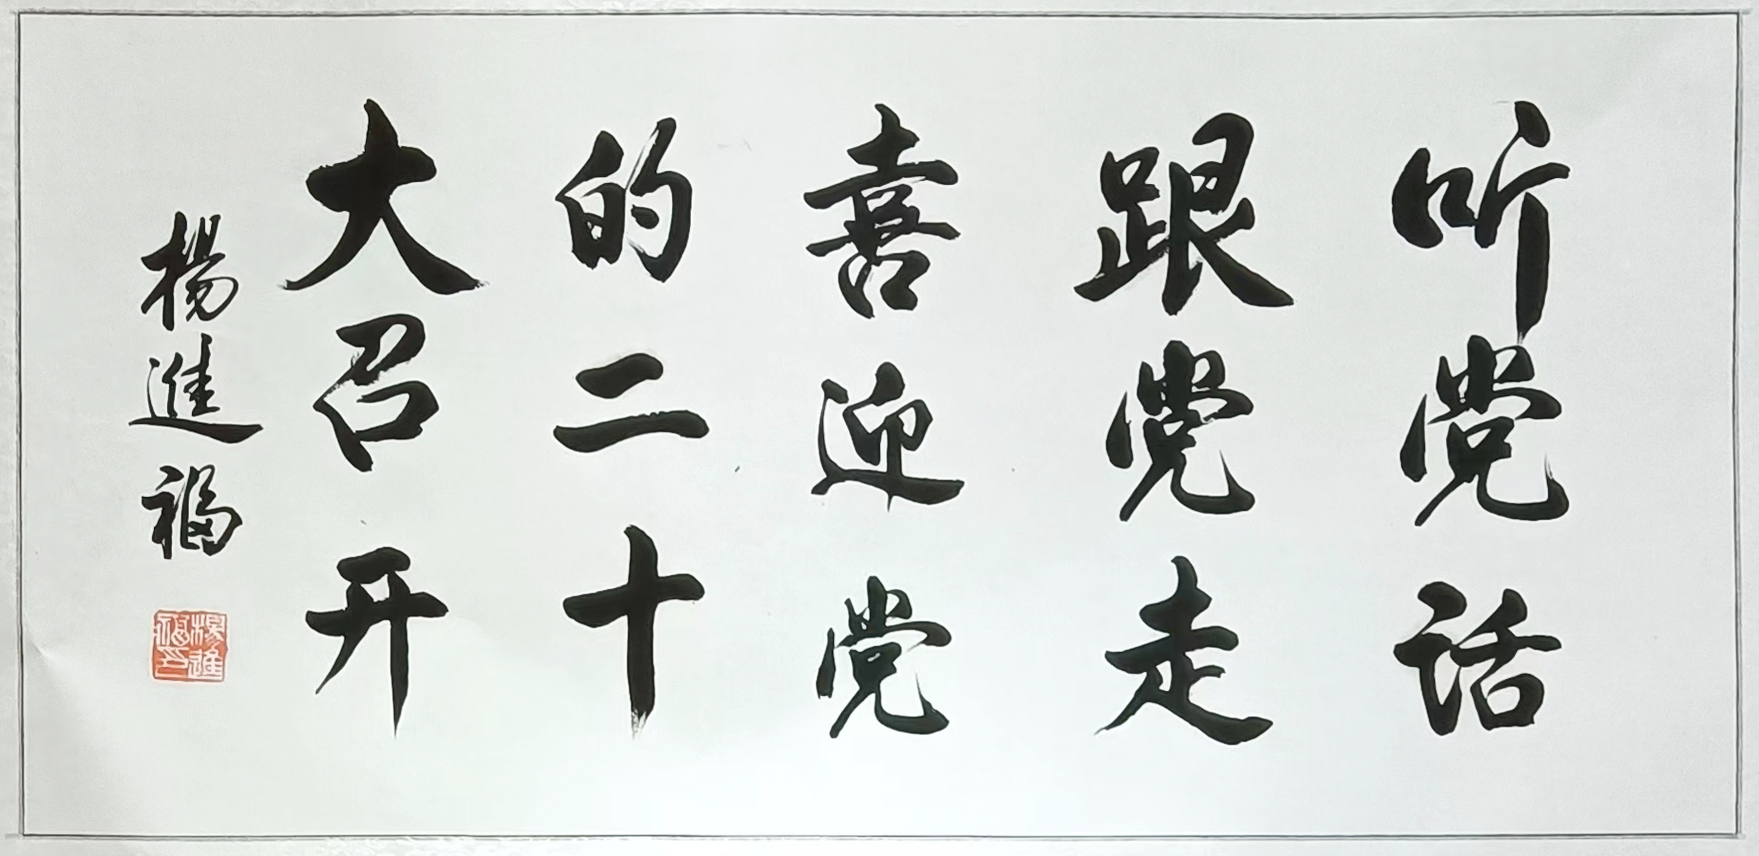 听党话
跟党走
喜迎党
的二十
大召开
楊進福
楊進福印